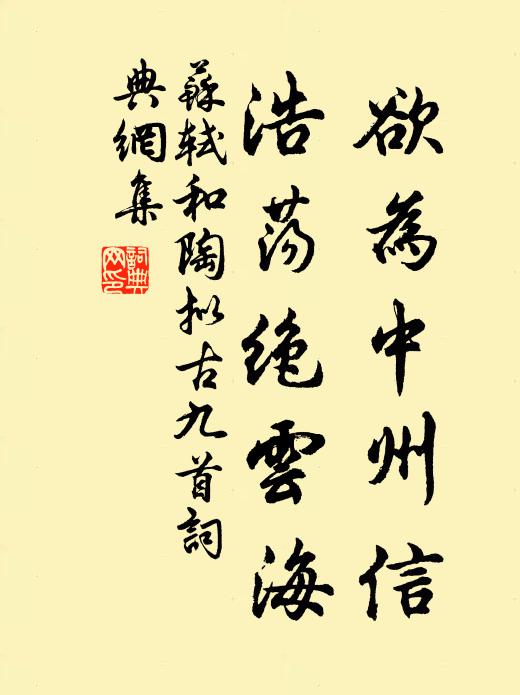 欲為中州信
浩蕩絶雲海
蘇軾和陶拟古九首詞
典網集
詞典
网印